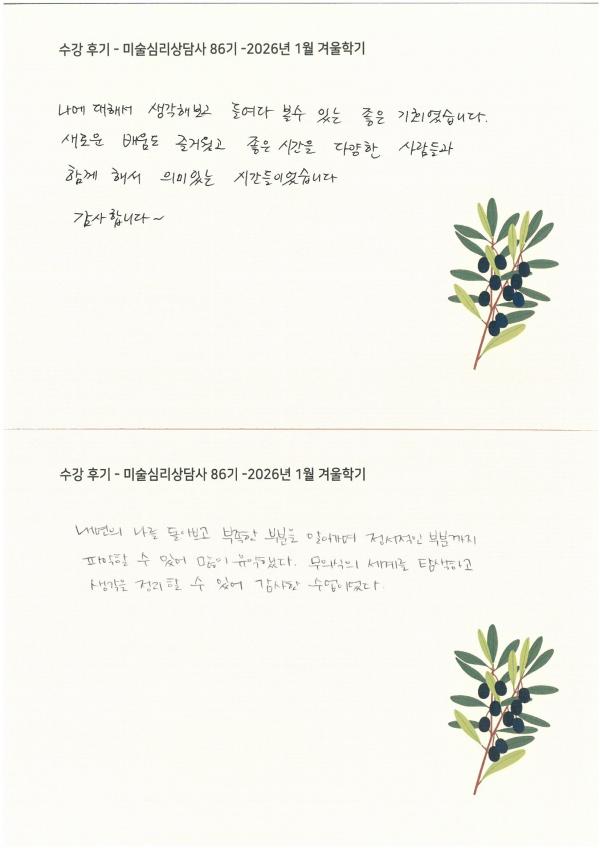 수강 후기 - 미술심리상담사 86기 -2026년 1월 겨울학기
나에 대해서 생각해보고 들여다 볼수 있는 좋은 기회였습니다.
새로운 배움도 즐거웠고 좋은 시간을 다양한 사람들과
함께 해서 의미있는 시간들이었습니다
감사합니다~
수강 후기 - 미술심리상담사 86기 -2026년 1월 겨울학기
내면의 나를 돌아보고 부족한 부분을 알아가며 정서적인 부분까지
파악할 수 있어 많이 유익했다. 무의식의 세계를 탐색하고
생각을 정리할 수 있어 감사한 수업이었다.